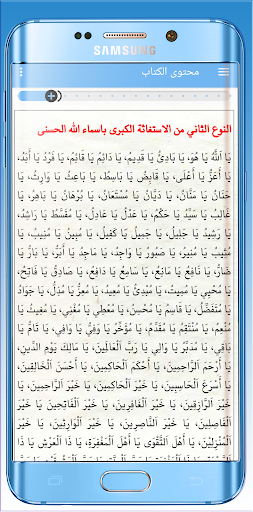 SAMSUNG
محتوى الكتاب
النوع الثاني من الاستغاثة الكبرى باسماء الله الحسنى
يَا اَللّٰهُ يَا هُوَ، يَا بَادِئُ يَا قَدِيمُ، يَا دَائِمُ يَا قَائِمُ، يَا فَرْدُ يَا أَبَدُ،
يَا أَعَزُّ يَا أَعْلَى، يَا قَابِضُ يَا بَاسِطُ، يَا بَاعِثُ يَا وَارِثُ، يَا
حَنَّانُ يَا مَنَّانُ، يَا دَيَّانُ يَا مُسْتَعَانُ، يَا بُرْهَانُ يَا بَاهِرُ، يَا
غَالِبُ يَا سَيِّدُ يَا حَكَمُ، يَا عَدْلُ يَا عَادِلُ، يَا مُقْسِطُ يَا رَاشِدُ،
يَا رَشِيدُ يَا جَلِيلُ، يَا جَمِيلُ يَا كَفِيلُ، يَا مُبِينُ يَا مُنِيبُ، يَا
مُثِيبُ يَا مُنِيرُ، يَا مُصَوِّرُ يَا وَاجِدُ، يَا مَاجِدُ يَا أَبَرُّ، يَا بَارُّ يَا
ضَارُّ، يَا نَافِعُ يَا مَانِعُ، يَا سَامِعُ يَا دَافِعُ، يَا صَادِقُ يَا فَاتِحُ،
يَا مُحْيِي يَا مُمِيتُ، يَا مُبْدِئُ يَا مُعِيدُ، يَا مُعِزُّ يَا مُذِلُّ، يَا جَوَادُ
يَا مُتَفَضِّلُ، يَا قَاسِمُ يَا مَاحِدُ، يَا مُعْطِي يَا مُغْنِي، يَا مُغِيثُ يَا
مُنْعِمُ، يَا مُنْتَقِمُ يَا مُقَدِّمُ، يَا مُؤَخِّرُ يَا وَفِيُّ يَا وَافِي، يَا تَامُّ يَا
بَاقِي، يَا مُدَبِّرُ يَا وَالِي، يَا رَبَّ الْعَالَمِينَ، يَا مَالِكَ يَوْمِ الدِّينِ،
يَا أَرْحَمَ الرَّاحِمِينَ، يَا أَحْكَمَ الْحَاكِمِينَ، يَا أَحْسَنَ الْخَالِقِينَ،
يَا أَسْرَعَ الْحَاسِبِينَ، يَا خَيْرَ الْحَاكِمِينَ، يَا خَيْرَ الرَّاحِمِينَ، يَا
خَيْرَ الرَّازِقِينَ، يَا خَيْرَ الْغَافِرِينَ، يَا خَيْرَ الْفَاتِحِينَ يَا خَيْرَ
الْفَاصِلِينَ، يَا خَيْرَ النَّاصِرِينَ، يَا خَيْرَ الْوَارِثِينَ، يَا خَيْرَ
الْمُنْزِلِينَ، يَا أَهْلَ التَّقْوَى يَا أَهْلَ الْمَغْفِرَةِ، يَا ذَا الْعَرْشِ يَا ذَا